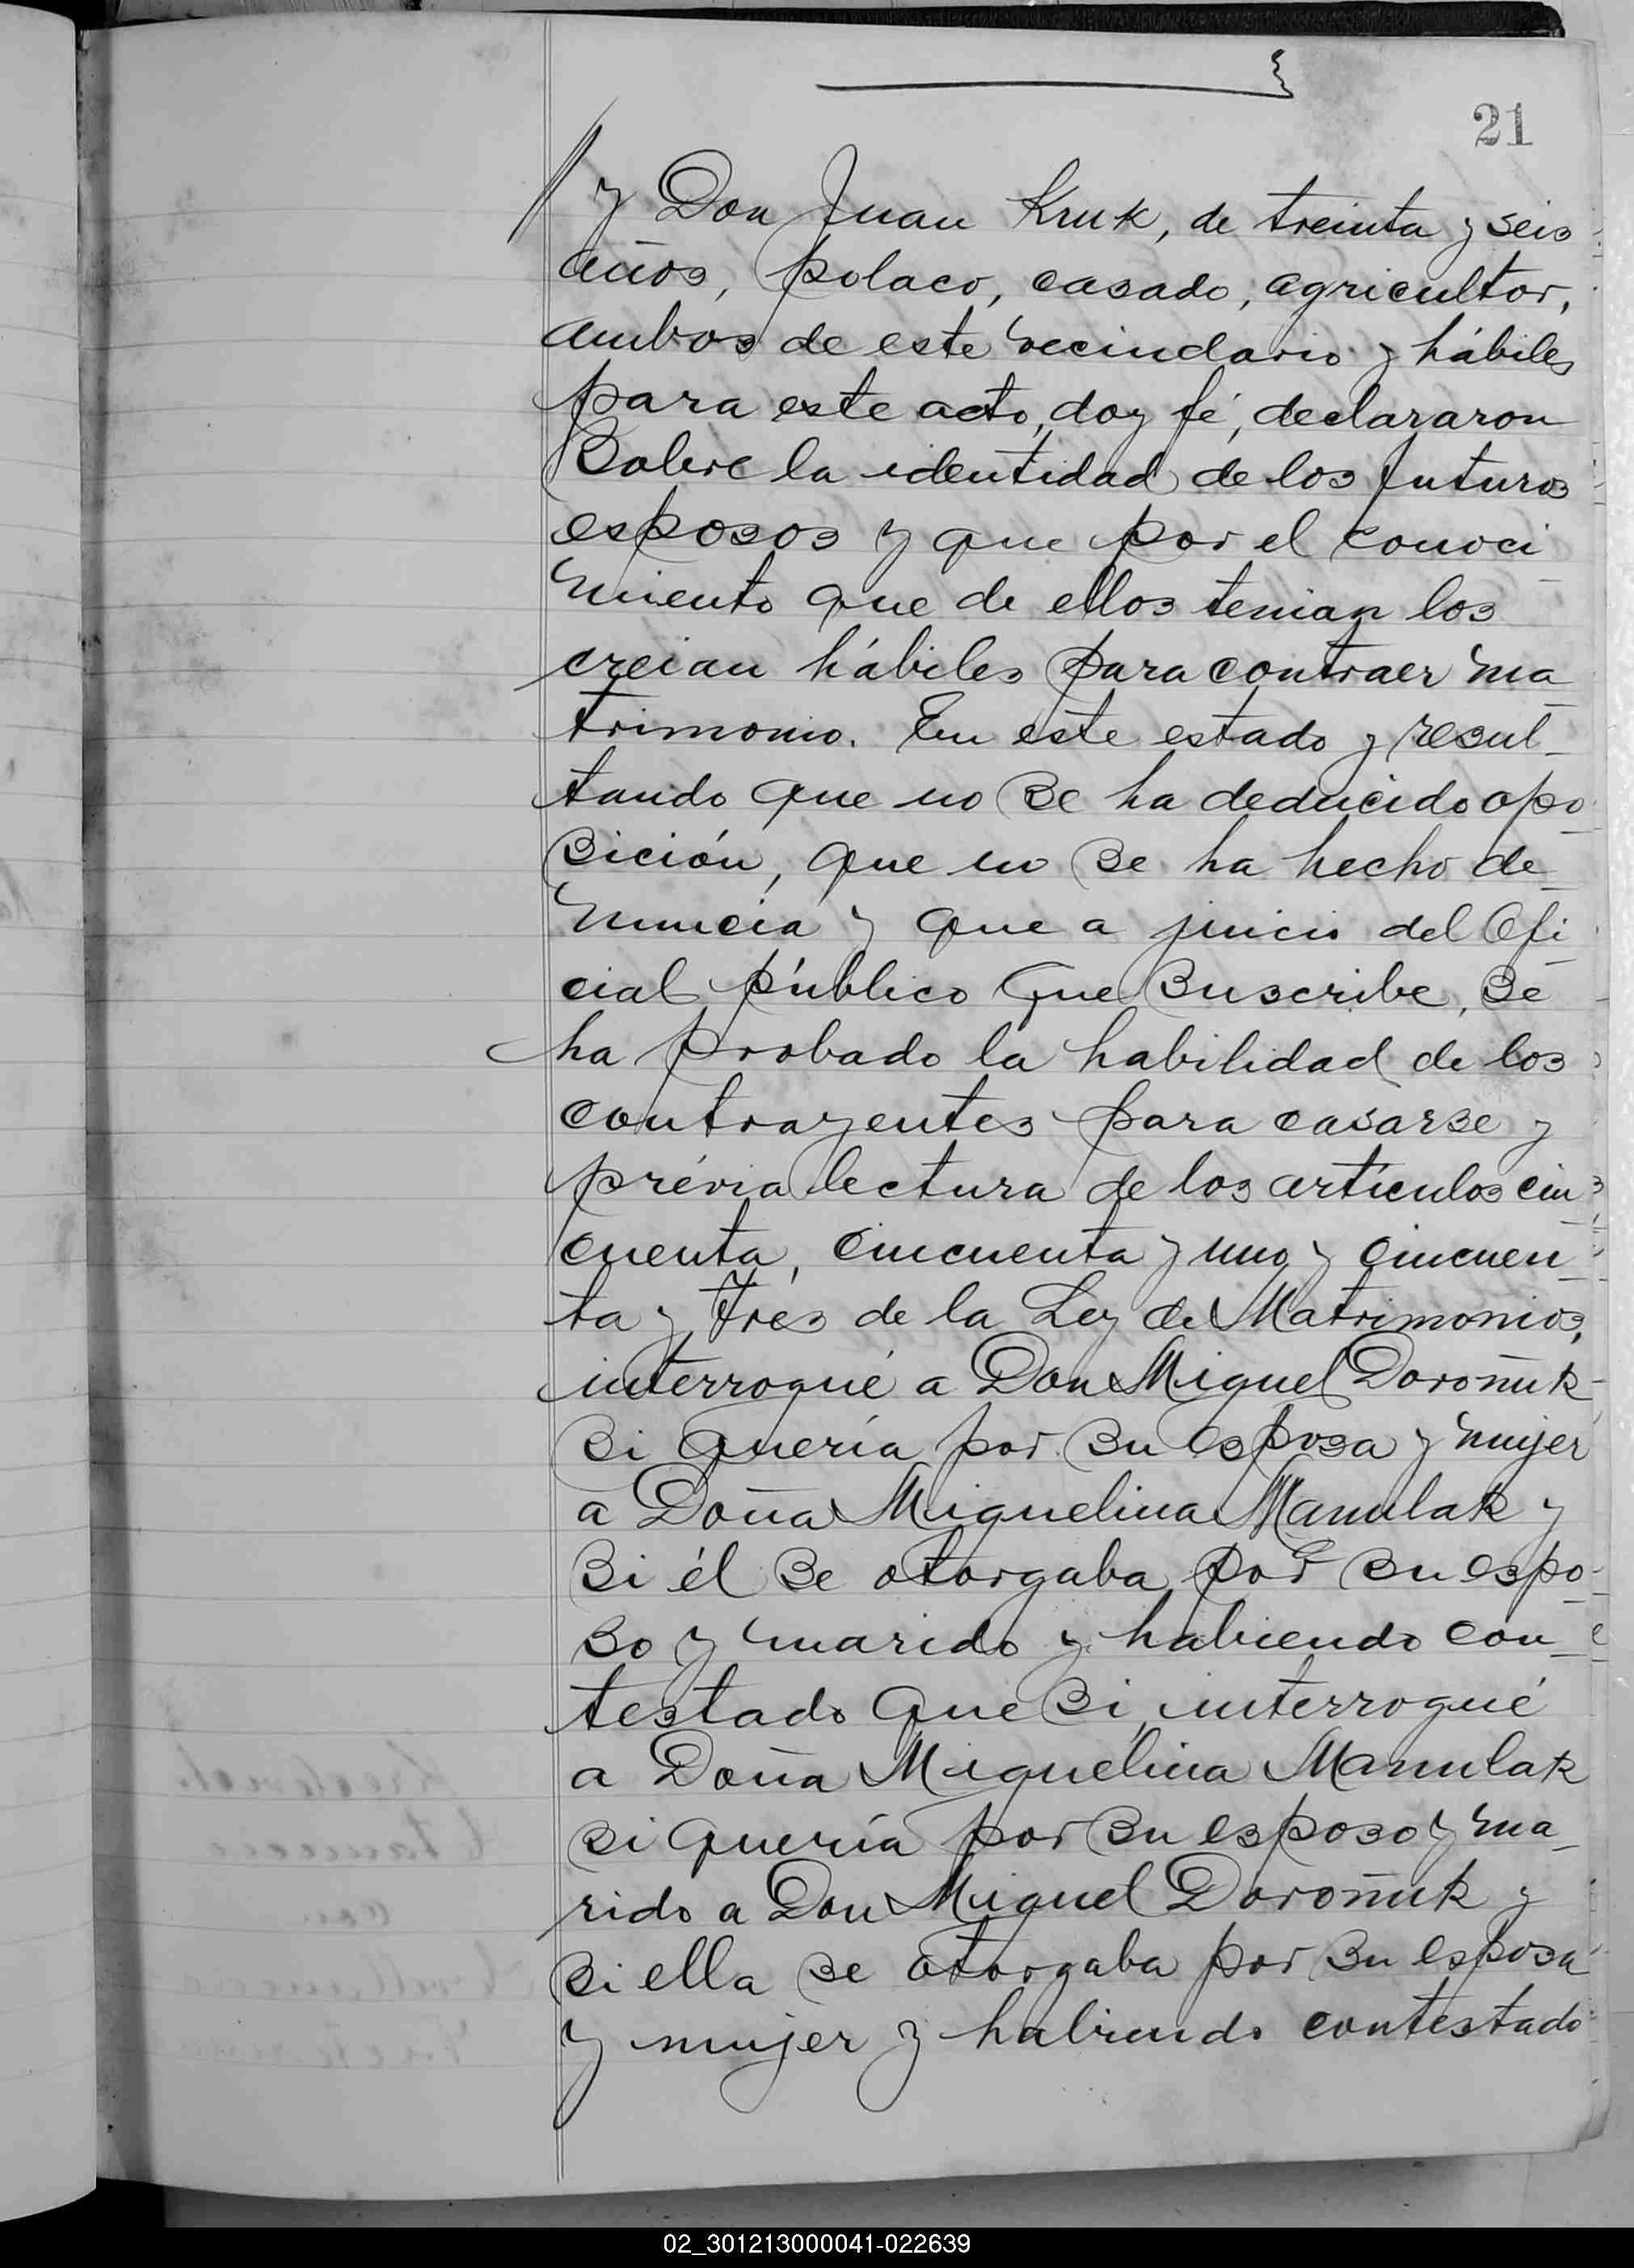 21
y Don Juan Kruk, de treinta y seis
años, polaco, casado, agricultor,
ambos de este vecindario y hábiles
para este acto, doy fé, declararon
sobre la identidad de los futuros
esposos y que por el conoci
miento que de ellos tenian los
creian hábiles para contraer ma
trimonio. En este estado y resul-
tando que no se ha deducido opo
sición, que no se ha hecho de
nuncia y que a juicio del Ofi
cial público que suscribe, se
ha probado la habilidad de los
contrayentes para casarse y
prévia lectura de los artículos cin
cuenta, cincuenta y uno y cincuen
ta y tres de la Ley de Matrimonios,
interrogué a Don Miguel Doroñuk
si quería por su esposa y mujer
a Doña Miguelina Manulak y
si él se otorgaba por su espo
so y marido y habiendo con
testado que si, interrogué
a Doña Miguelina Manulak
si quería por su esposo y ma
rido a Don Miguel Doroñuk y
si ella se otorgaba por su esposa
y mujer y habiendo contestado
02_301213000041-022639